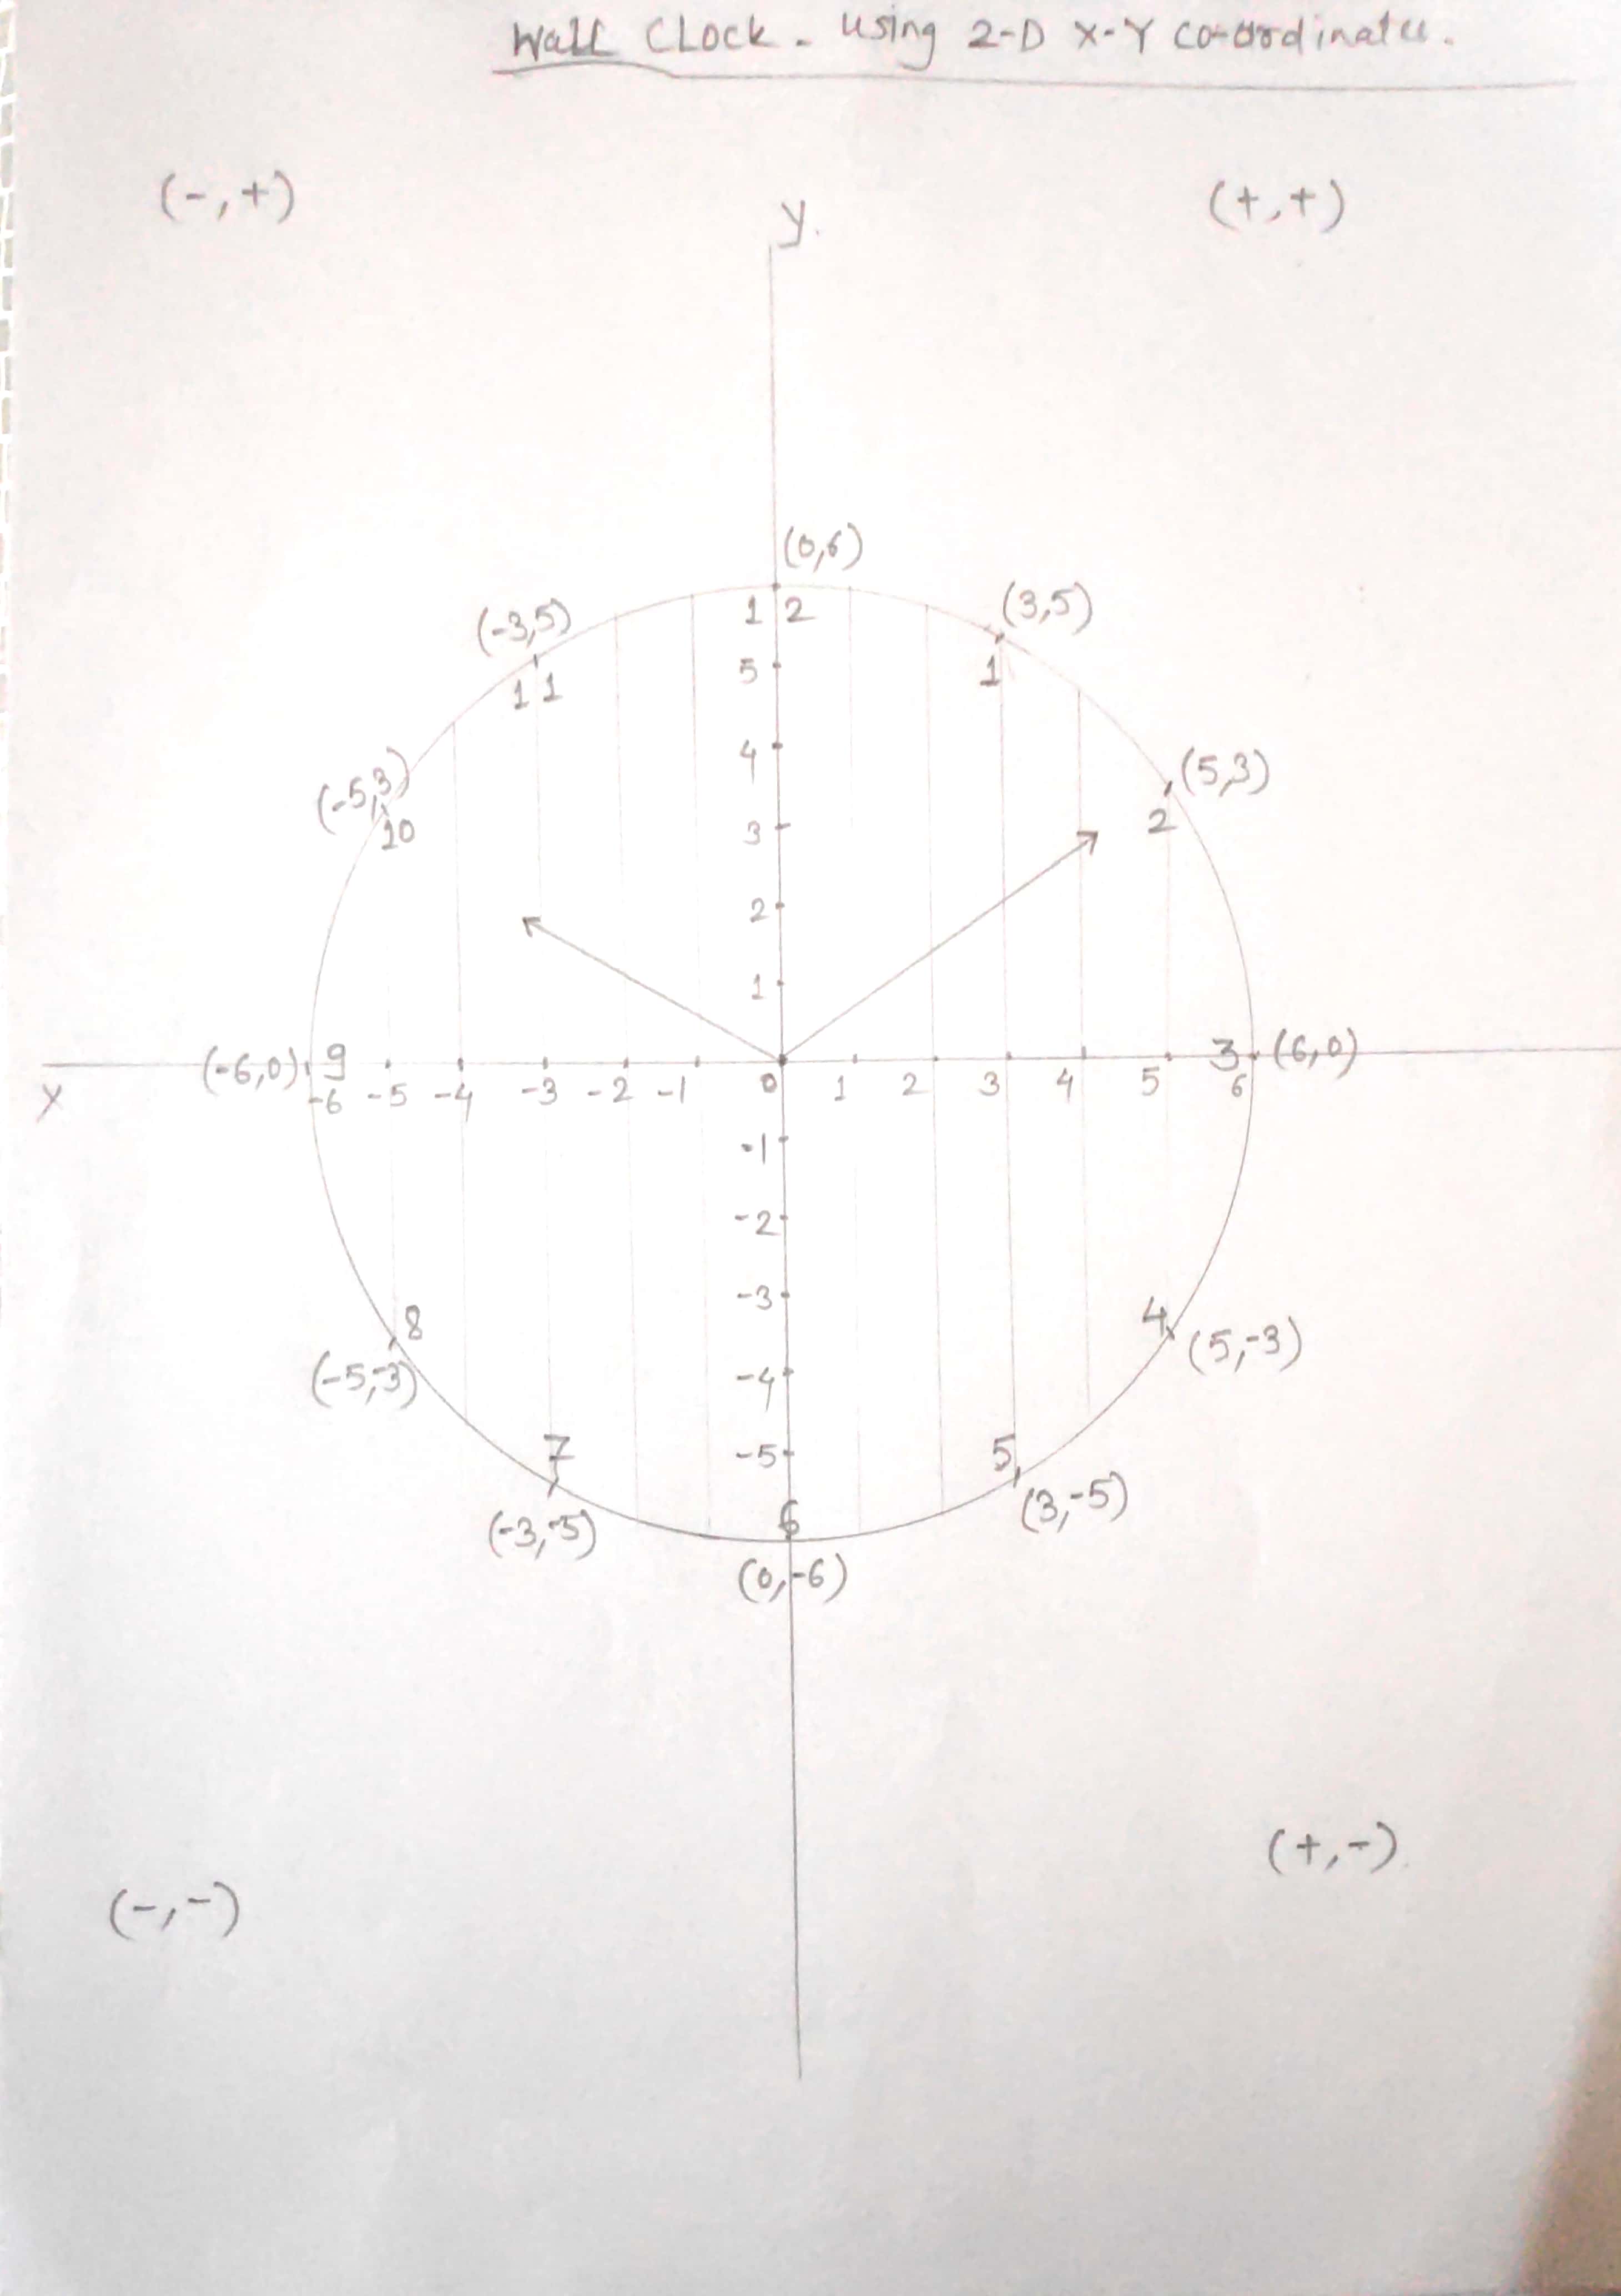 Wall CLOCK - using 2-D X-Y co-ordinates.
(-,+)
(+,+)
y.
(0,6)
(-3,5)
12
(3,5)
11
5
1
(-5,3)
4
(5,3)
10
3
2
2
1
(-6,0) 9
3 (6,0)
X
-6 -5 -4 -3 -2 -1 0 1 2 3 4 5 6
-1
-2
-3
8
4
(-5,-3)
(5,-3)
-4
7
-5
5
(-3,-5)
6
(3,-5)
(0,-6)
(+,-)
(-,-)